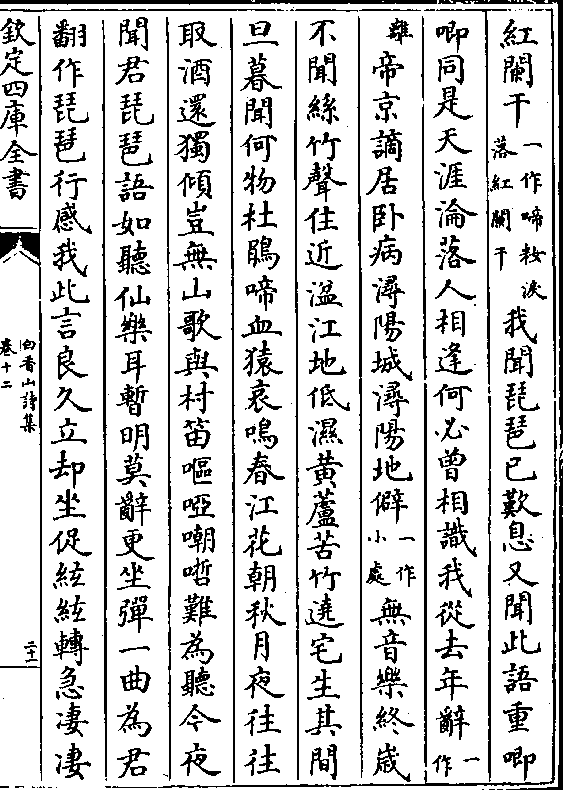 紅闌干一作啼粧淚落紅闌干我聞琵琶已歎息又聞此語重唧
唧同是天涯淪落人相逢何必曾相識我從去年辭一作
離帝京謫居卧病潯陽城潯陽地僻一作小處無音樂終嵗
不聞絲竹聲住近湓江地低濕黄蘆苦竹遶宅生其間
旦暮聞何物杜鵑啼血猿哀鳴春江花朝秋月夜往往
取酒還獨傾豈無山歌與村笛嘔啞嘲哳難為聽今夜
聞君琵琶語如聽仙樂耳暫明莫辭更坐彈一曲為君
翻作琵琶行感我此言良久立却坐促絃絃轉急凄凄
欽定四庫全書
白香山詩集
卷十二
二十一